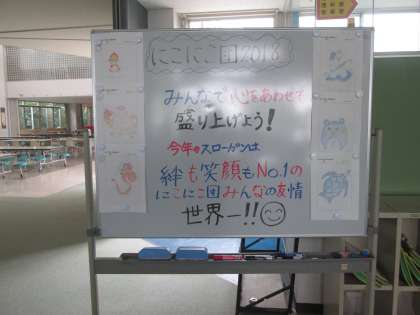 にこにこ園2018
みんなで心をあわせて
盛り上げよう!
今年のスローガンは
絆も笑顔もNo.1の
にこにこ園みんなの友情
世界一!!